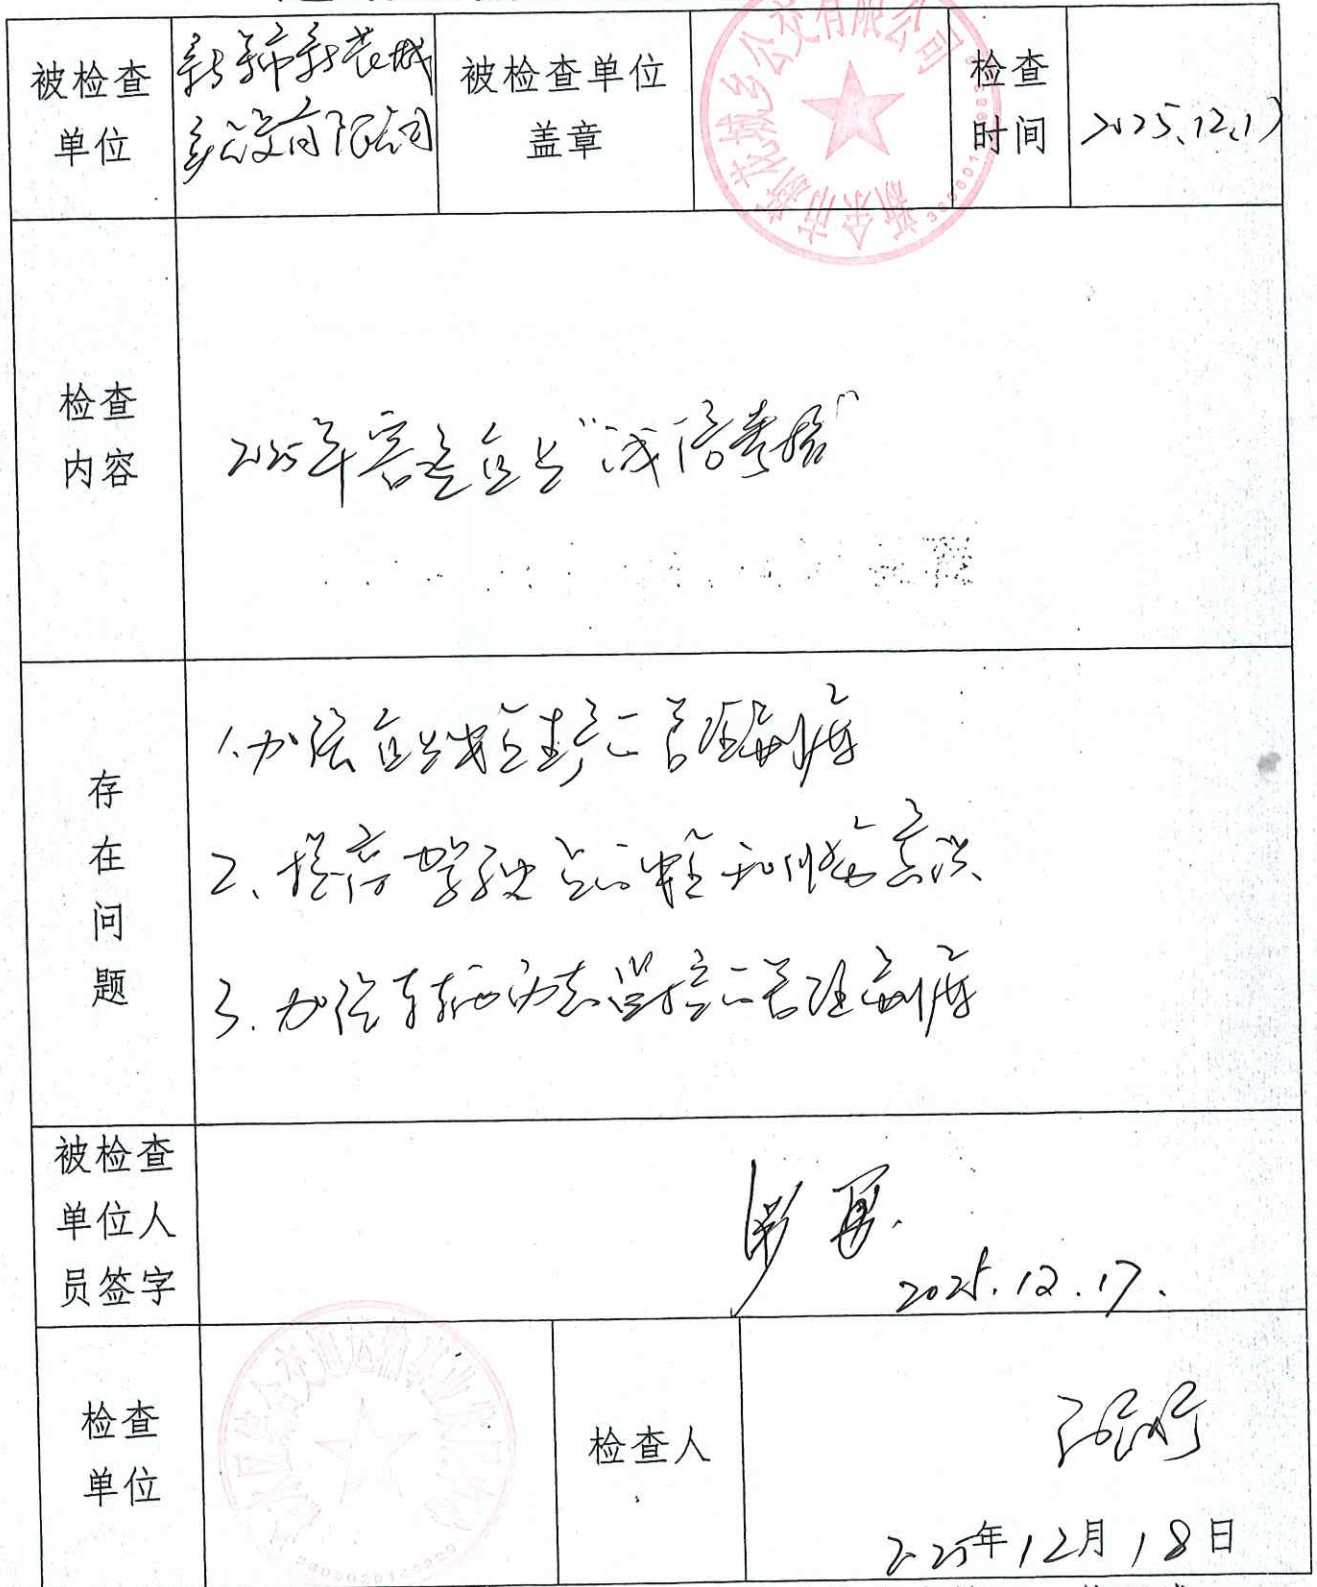 被检查
单位
新余市新花城
乡公交有限公司
被检查单位
盖章
新余市新花城乡公交有限公司
检查
时间
2025.12.17
检查
内容
2025年客运企业"诚信考核"
存
在
问
题
1.加强企业安全生产管理制度
2、提高驾驶员的安全和服务意识
3.加强车辆动态监控的管理制度
被检查
单位人
员签字
罗勇
2025.12.17.
检查
单位
检查人
2025年12月18日